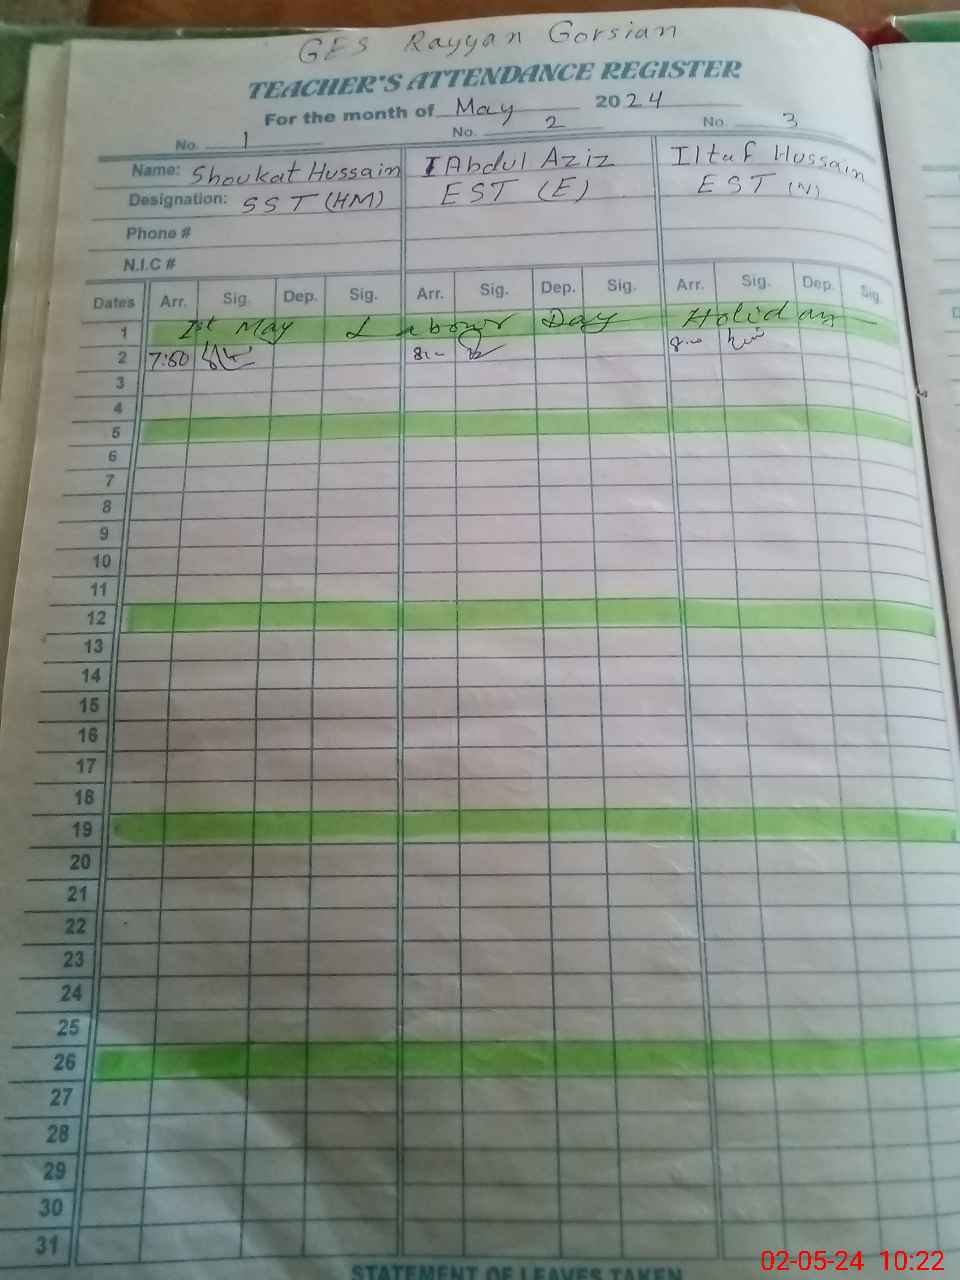 GES Rayyan Gorsian
TEACHER'S ATTENDANCE REGISTER
For the month of May 2024
No. 1 No. 2 No. 3
Name: Shoukat Hussain Abdul Aziz Iltaf Hussain
Designation: SST (HM) EST (E) EST
Phone #
N.I.C #
Dates Arr. Sig. Dep. Sig. Arr. Sig. Dep. Sig. Arr. Sig. Dep. Sig.
1 1st May Labour Day Holiday
2 7:50
3
4
5
6
7
8
9
10
11
12
13
14
15
16
17
18
19
20
21
22
23
24
25
26
27
28
29
30
31
STATEMENT OF LEAVES TAKEN
02-05-24 10:22